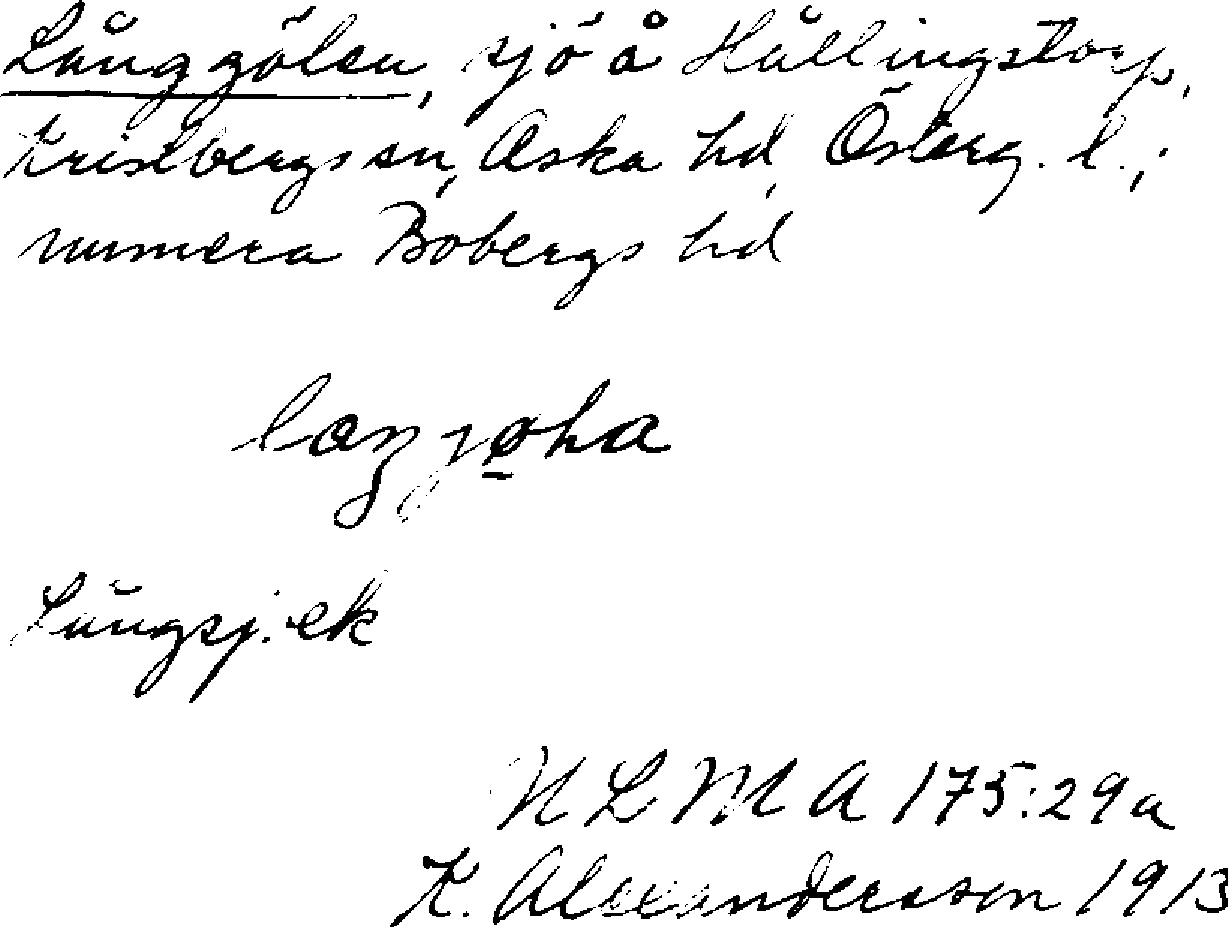 Långgölen, sjö å Hållingstorp,
Kristbergs sn, Aska hd, Österg. l.;
numera Bobergs hd
Långsj. ek
NLM A 175:29a
K. Alexandersson 1913